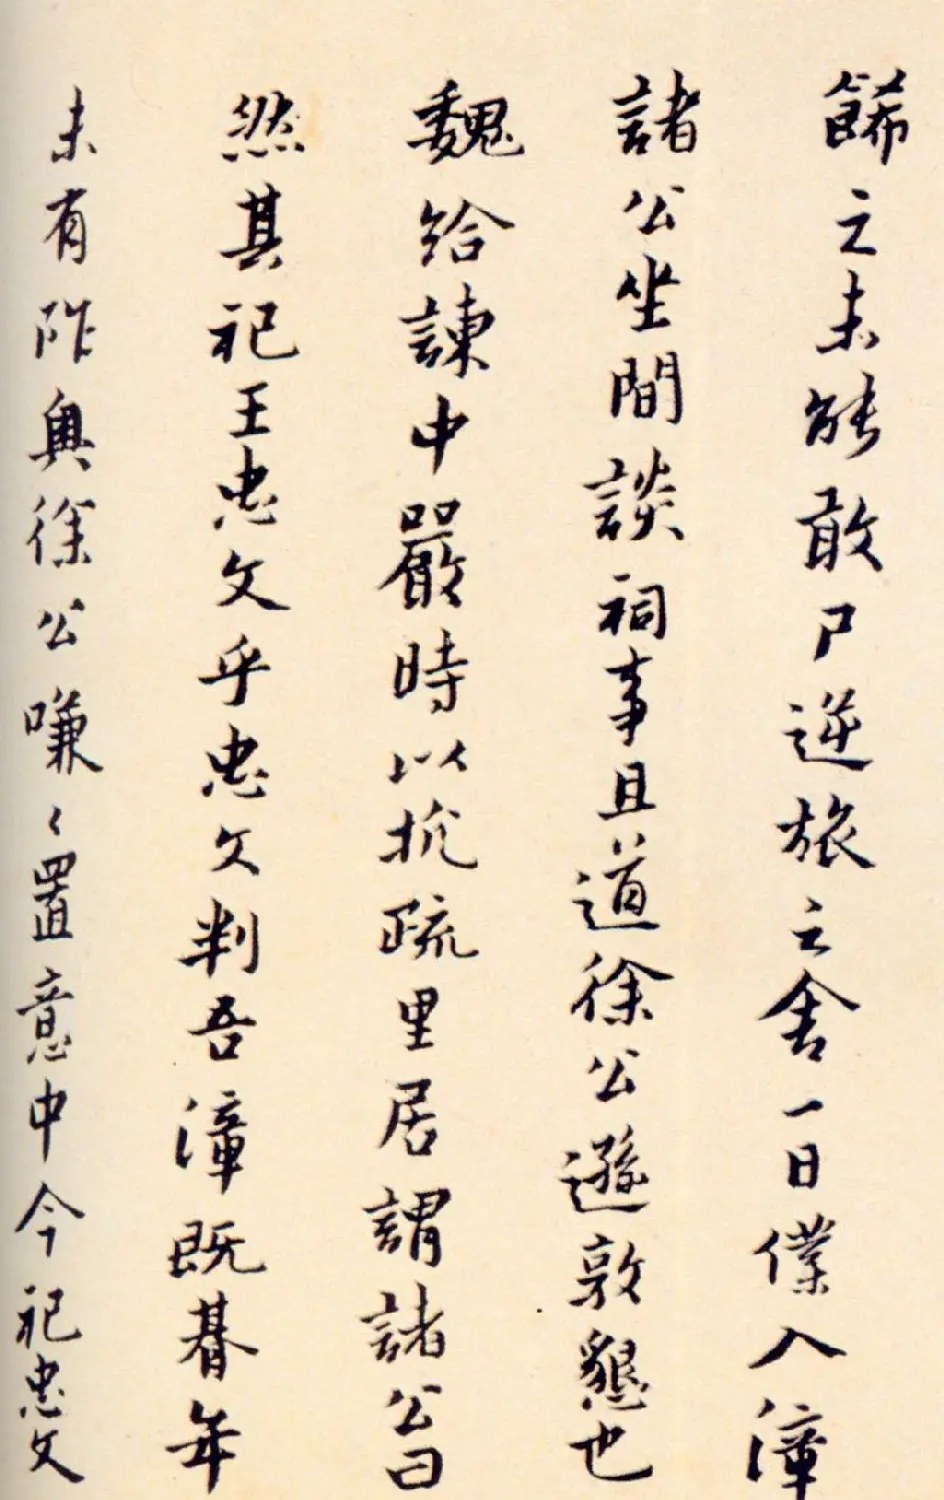 餙之未能敢尸逆旅之舍一日僕入漳
諸公坐間談祠事且道徐公遜敦懇也
魏給諫中嚴時以抗疏里居謂諸公曰
然其祀王忠文乎忠文判吾漳既朞年
未有阼與徐公嗛〻置意中今祀忠文